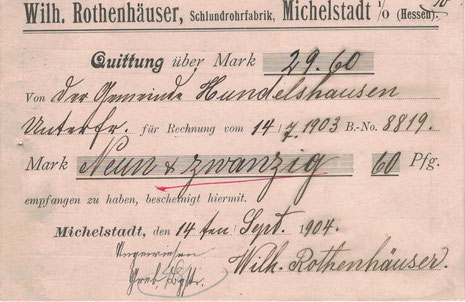 Wilh. Rothenhäuser, Schlundrohrfabrik, Michelstadt i/O (Hessen).
Quittung über Mark 29.60
Von der Gemeinde Hundelshausen
Unterfr. für Rechnung vom 14/7.1903 B.-No. 8819.
Mark Neun & zwanzig 60 Pfg.
empfangen zu haben, bescheinigt hiermit.
Michelstadt, den 14ten Sept. 1904.
Angewiesen
Wilh. Rothenhäuser.